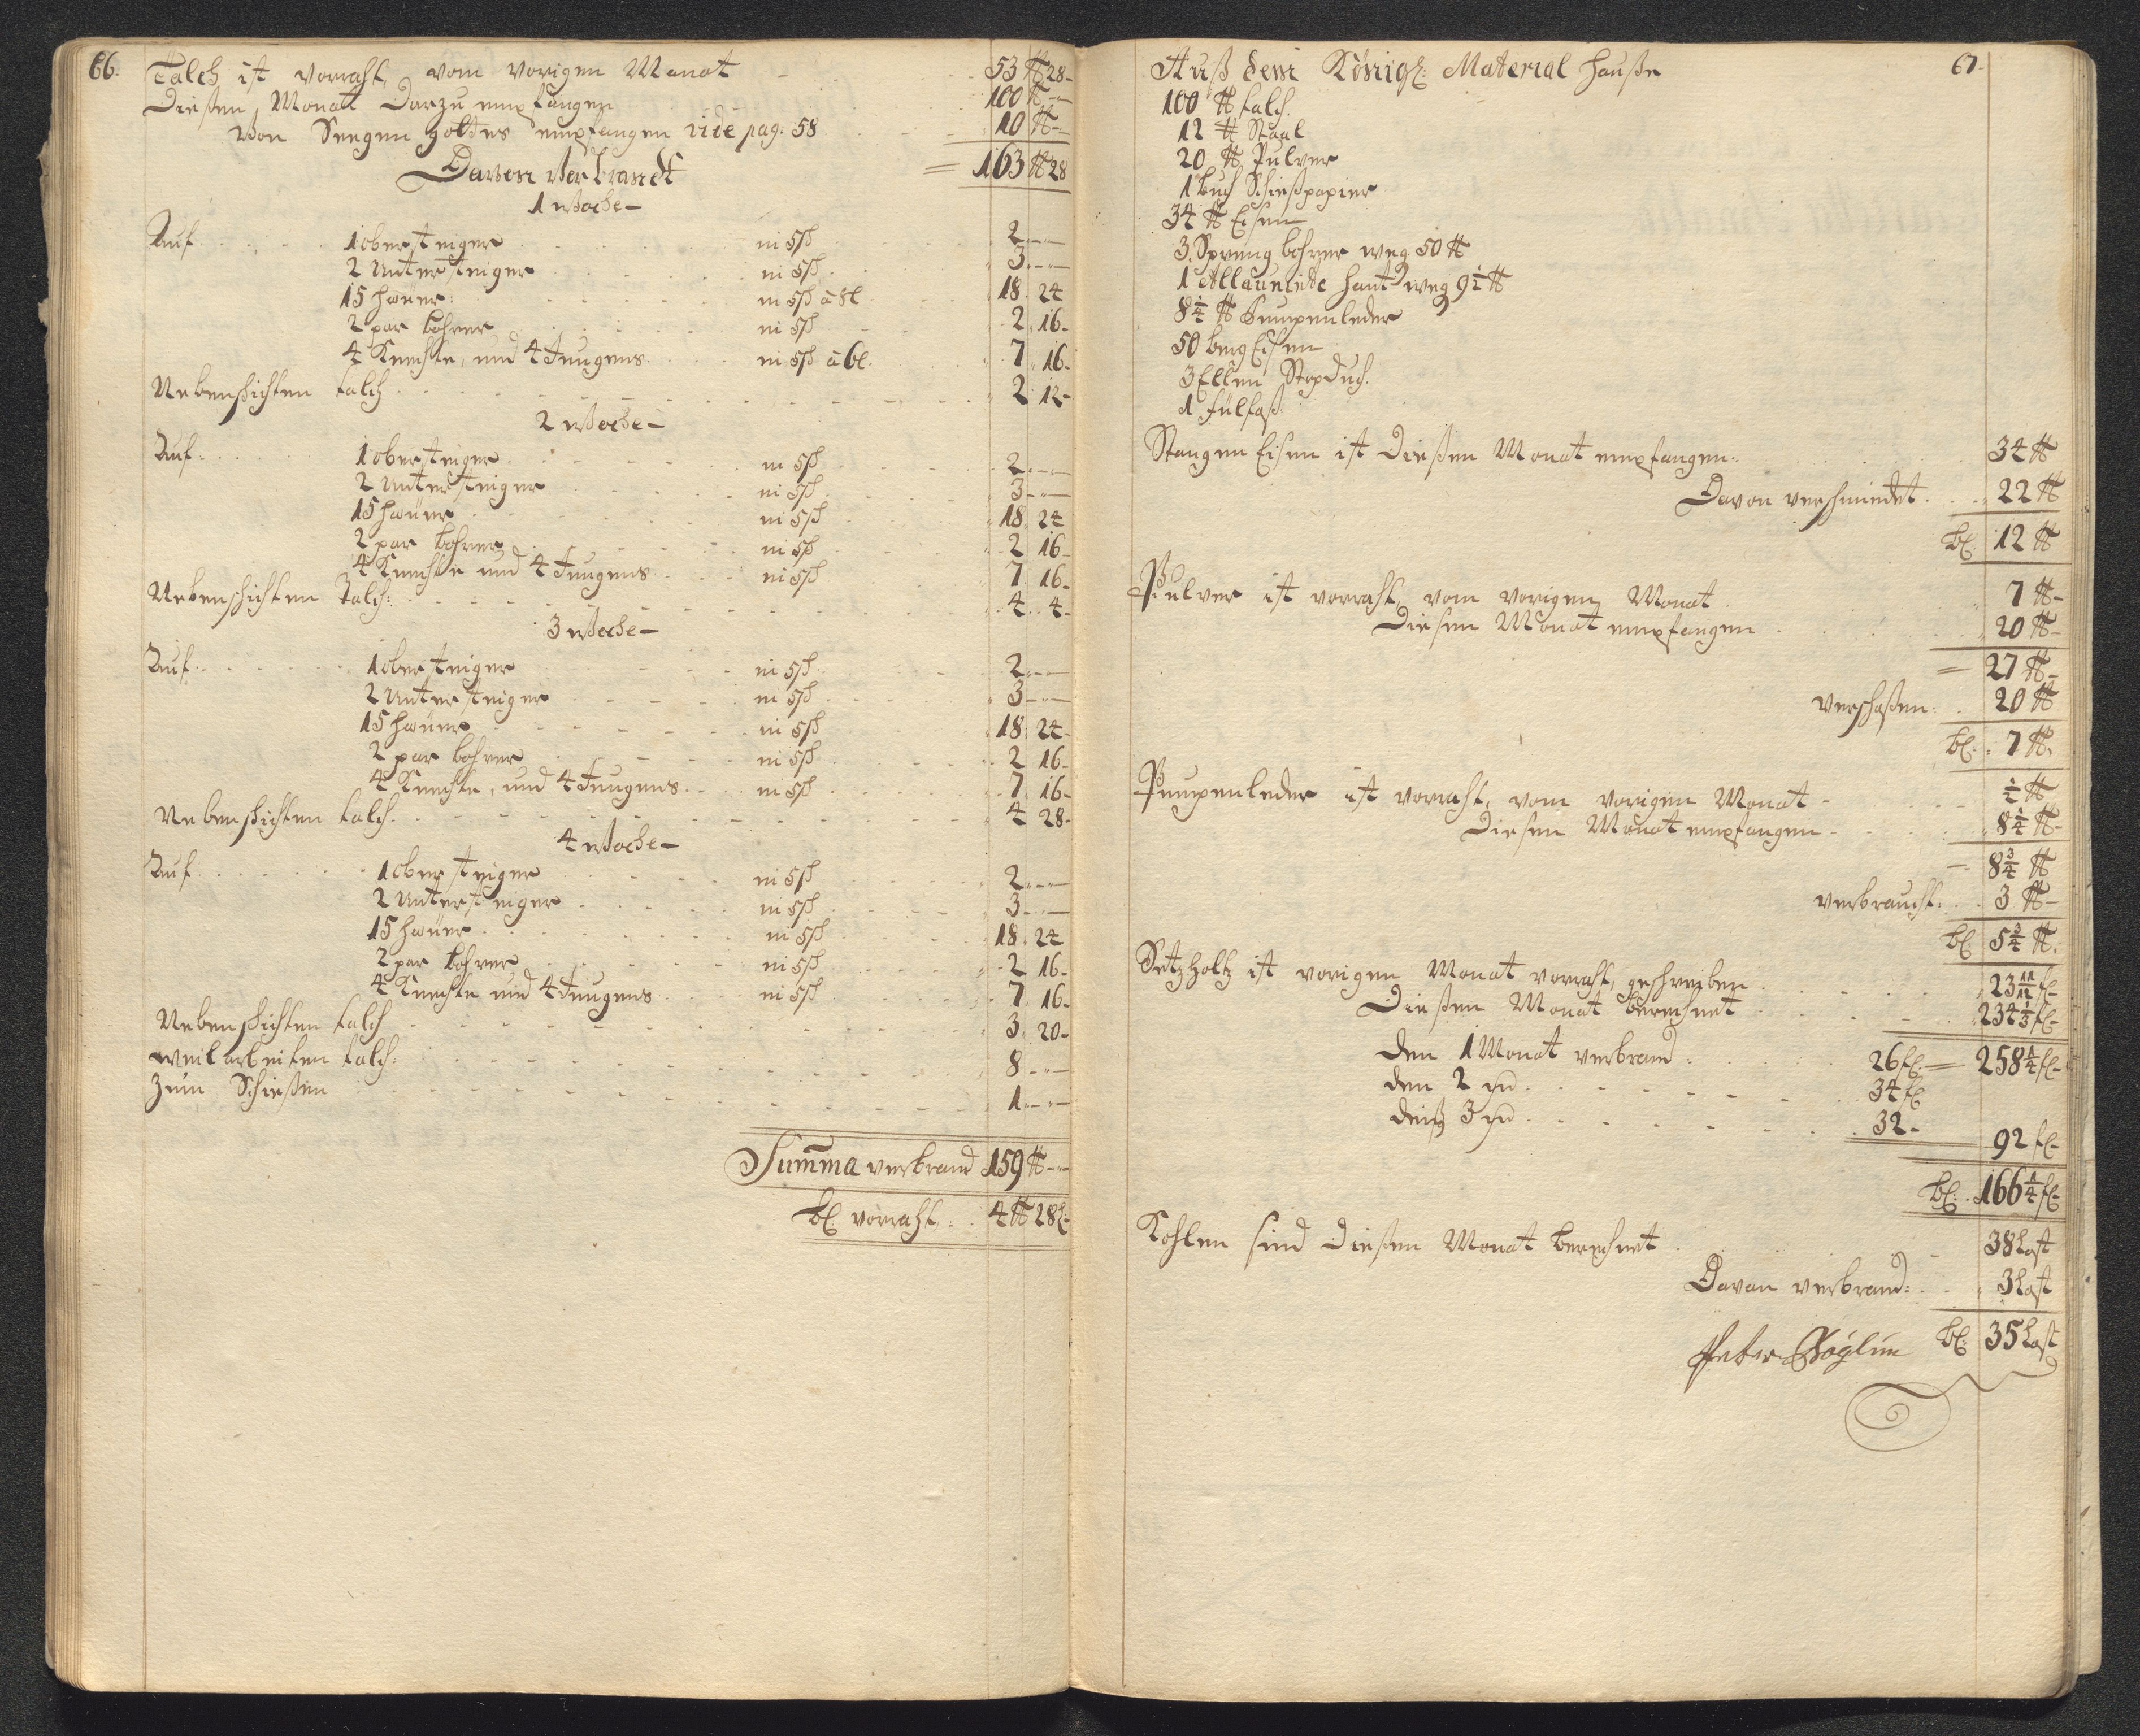 66.
Talch ist vorraht, vom vorigen Monat 53 ℔ 28
Dießen Monat Darzu empfangen 100 ℔
Von Seegen gottes empfangen vide pag. 58 10 ℔
= 163 ℔ 28
Davon verbrandt
1 Woche
Auf 1 obersteiger in 5ß 2
2 Untersteiger in 5ß 3
15 häüer in 5ß à 8l 18 24
2 par bohrer in 5ß 2 16
4 Knechte, und 4 Jungens in 5ß à 6l. 7 16
Nebenschichten talch 2 12
2 Woche
Auf: 1 obersteiger in 5ß 2
2 Untersteiger in 5ß 3
15 häüer in 5ß 18 24
2 par bohrer in 5ß 2 16
4 Knechte und 4 Jungens in 5ß 7 16
Nebenschichten Talch: 4 4
3 Woche
Auf: 1 obersteiger in 5ß 2
2 Untersteiger in 5ß 3
15 häüer in 5ß 18 24
2 par bohrer in 5ß 2 16
4 Knechte, und 4 Jungens in 5ß 7 16
Nebenschichten talch. 4 28
4 Woche
Auf: 1 obersteiger in 5ß 2
2 Untersteiger in 5ß 3
15 häüer in 5ß 18 24
2 par bohrer in 5ß 2 16
4 Knechte und 4 Jungens in 5ß 7 16
Nebenschichten talch 3 20
weilarbeiten talch: 8
Zum Schießen 1
Summa verbrand 159 ℔
bl. vorraht: 4 ℔ 28 l
67
Auß dem Königl: Material hauße
100 ℔ talch.
12 ℔ Staal
20 ℔ Pulver
1 buch Schießpapier
34 ℔ Eisen
3 Sprengbohrer weg 50 ℔
1 Allaunirte haut weg 9½ ℔
8¼ ℔ Pumpenleder
50 bergEisen
3 Ellen Stopduch.
1 fülfaß
StangenEisen ist Dießen Monat empfangen: 34 ℔
Davon verschmiedet 22 ℔
bl: 12 ℔
Pulver ist vorraht, vom vorigen Monat 7 ℔
Diesen Monat empfangen 20 ℔
= 27 ℔
verschoßen: 20 ℔
bl: 7 ℔.
Pumpenleder ist vorraht, vom vorigen Monat ½ ℔
Diesen Monat empfangen 8¼ ℔
= 8¾ ℔
verbraucht: 3 ℔
bl 5¾ ℔.
Setzholtz ist vorigen Monat vorraht, geschreiben 23 11/12 fl
Dießen Monat berechnet 234⅓ fl
den 1 Monat verbrand: 26 fl = 258¼ fl
den 2 34 fl
3 32
92 fl
bl: 166¼ fl
Kohlen sind dießen Monat berechnet 38 Last
Davon verbrand: 3 Last
bl: 35 Last
Peter